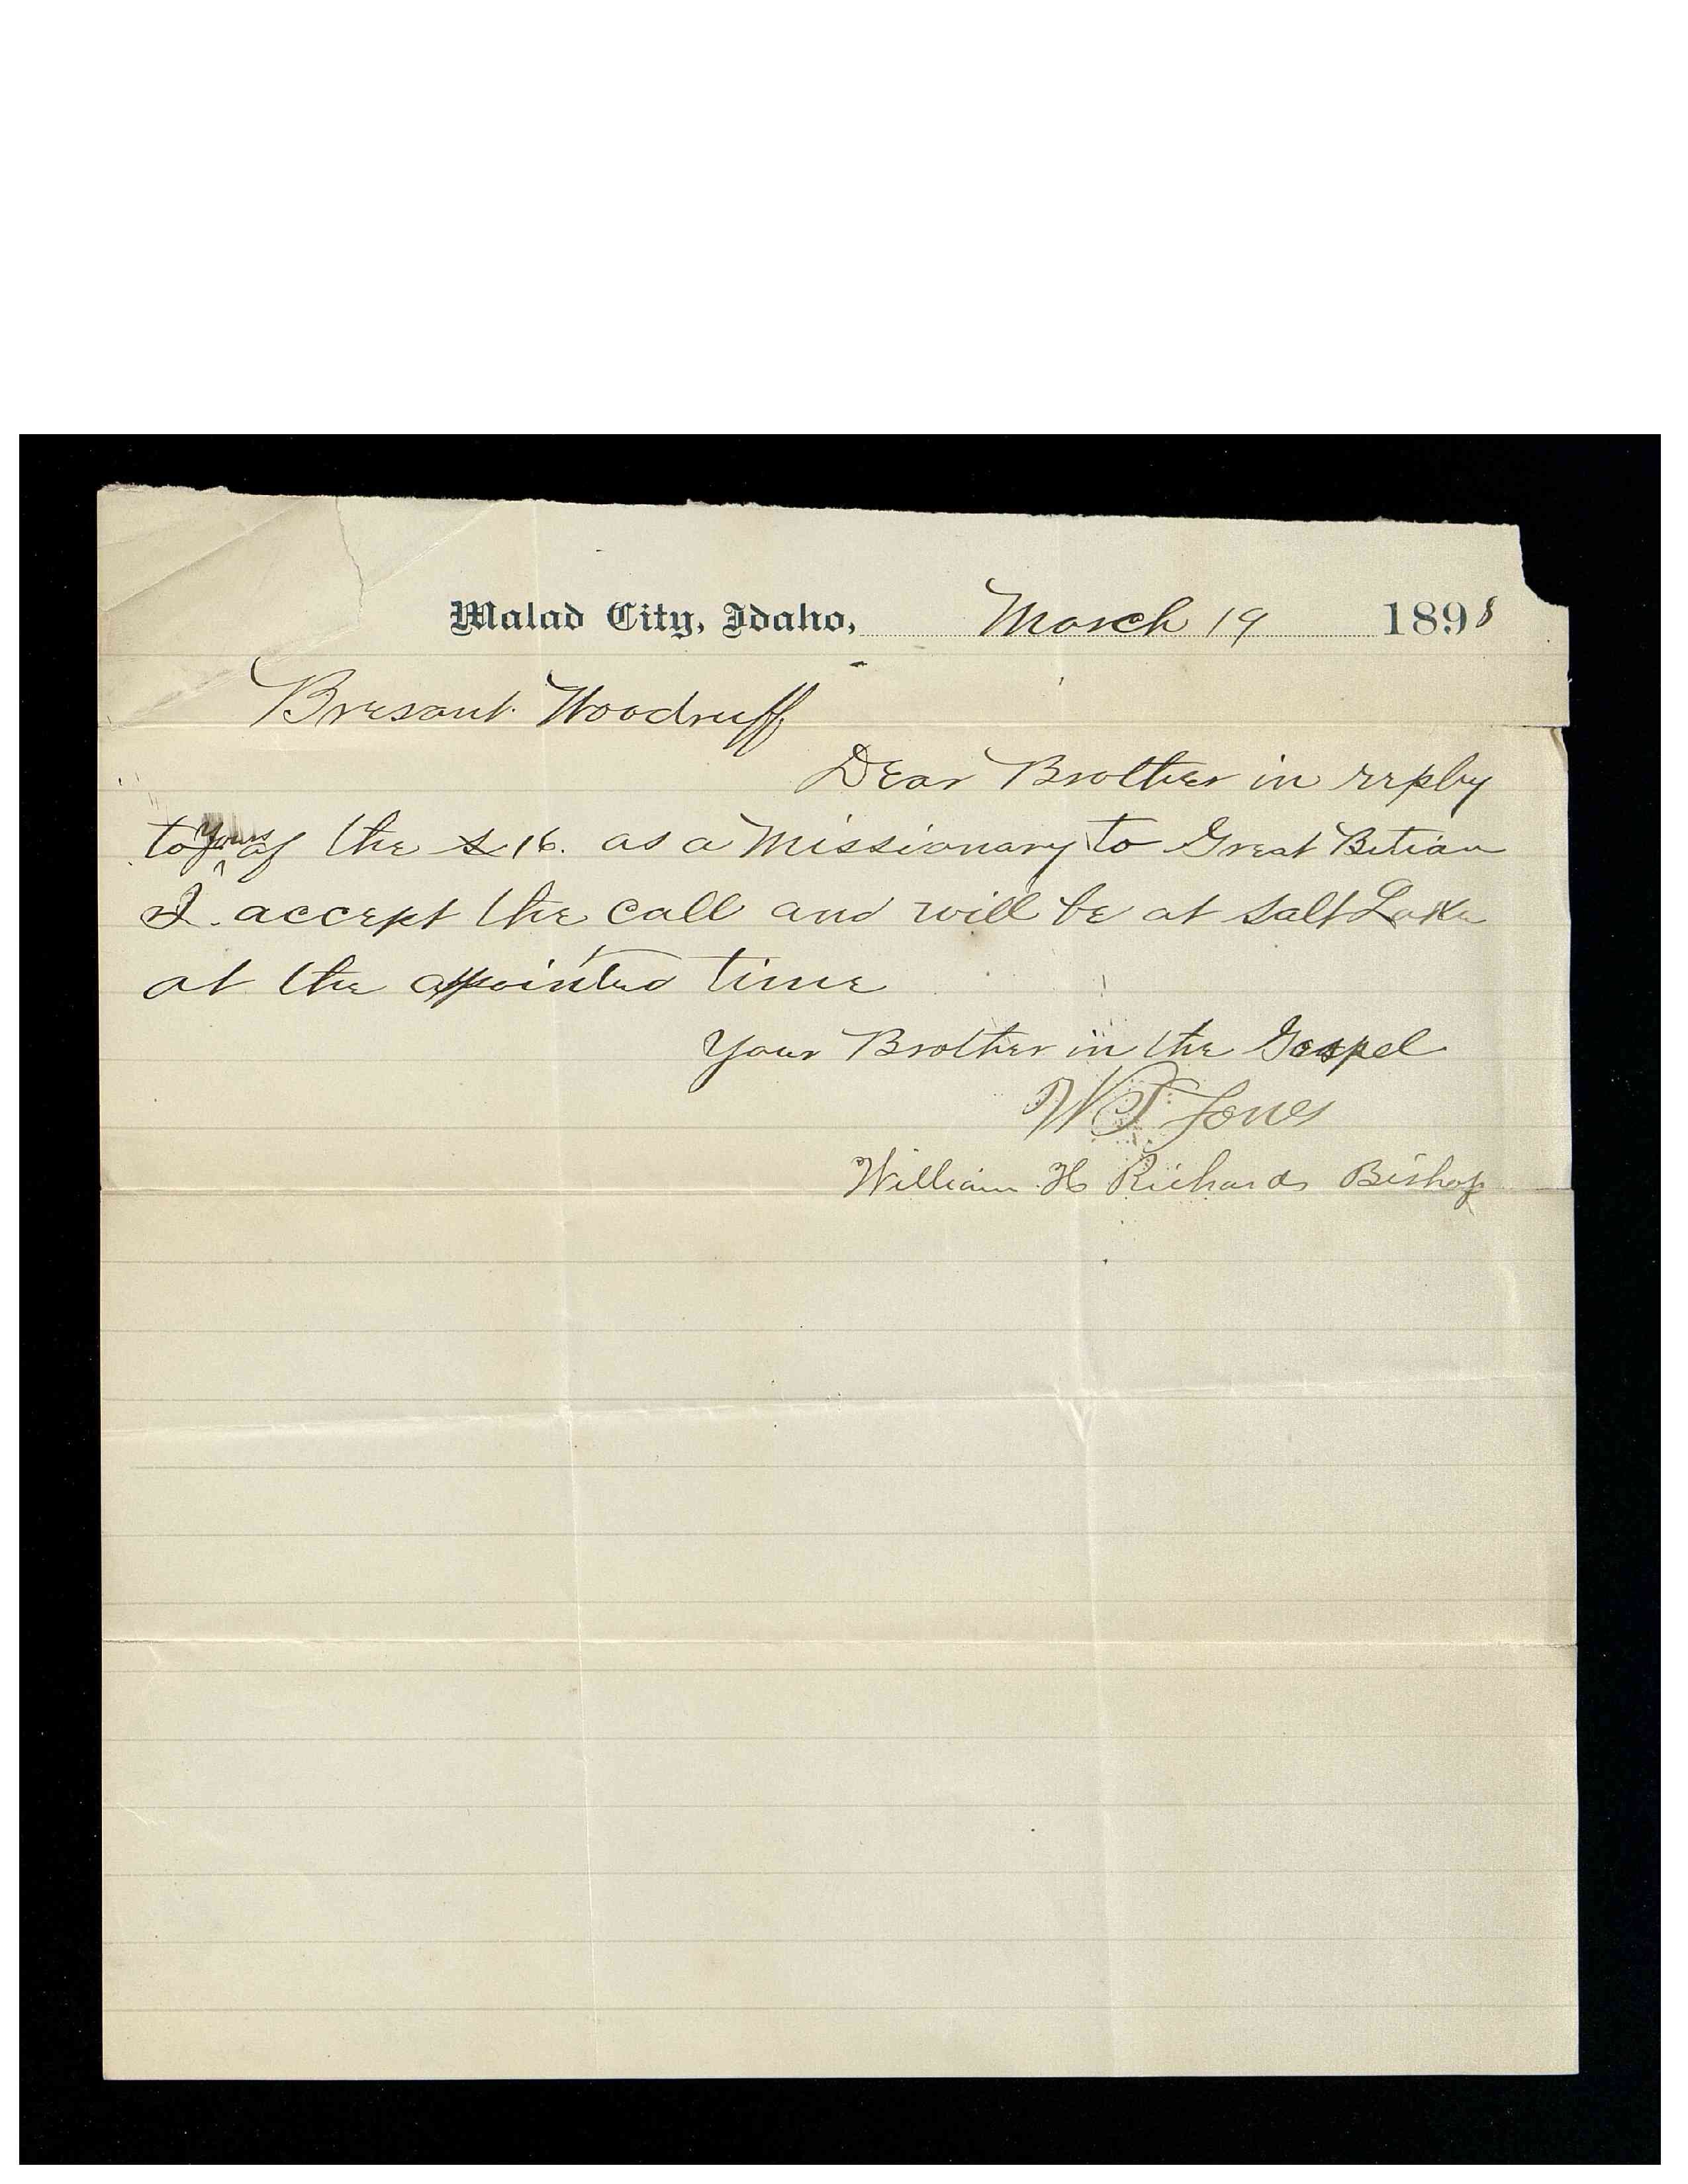 Malad City, Idaho, March 19 1898
Bresant Woodruff
Dear Brother in reply
to Yours of the 16. as a Missionary to Great Bitian
I accept the call and will be at Salt Lake
at the appointed time
Your Brother in the Gospel
W J Jones
William H Richards Bishop